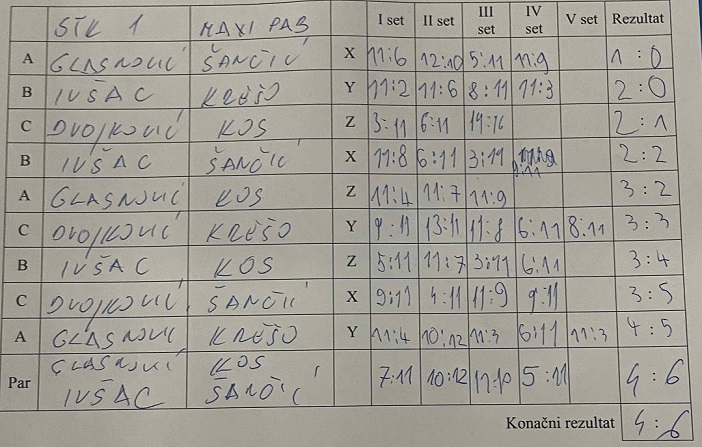 STK 1 MAXI PAB I set II set III set IV set V set Rezultat
A GLASNOVIĆ ŠANČIĆ X 11:6 12:10 5:11 11:9 1:0
B IVŠAC KREŠO Y 11:2 11:6 8:11 11:3 2:0
C DVOJKOVIĆ KOS Z 3:11 6:11 14:16 2:1
B IVŠAC ŠANČIĆ X 11:8 6:11 3:11 9:11 2:2
A GLASNOVIĆ KOS Z 11:4 11:7 11:9 3:2
C DVOJKOVIĆ KREŠO Y 9:11 13:11 11:8 6:11 8:11 3:3
B IVŠAC KOS Z 5:11 11:7 3:11 6:11 3:4
C DVOJKOVIĆ ŠANČIĆ X 9:11 4:11 11:9 9:11 3:5
A GLASNOVIĆ KREŠO Y 11:4 10:12 11:3 6:11 11:3 4:5
Par GLASNOVIĆ KOS
IVŠAC ŠANČIĆ 7:11 10:12 5:11 4:6
Konačni rezultat 4:6